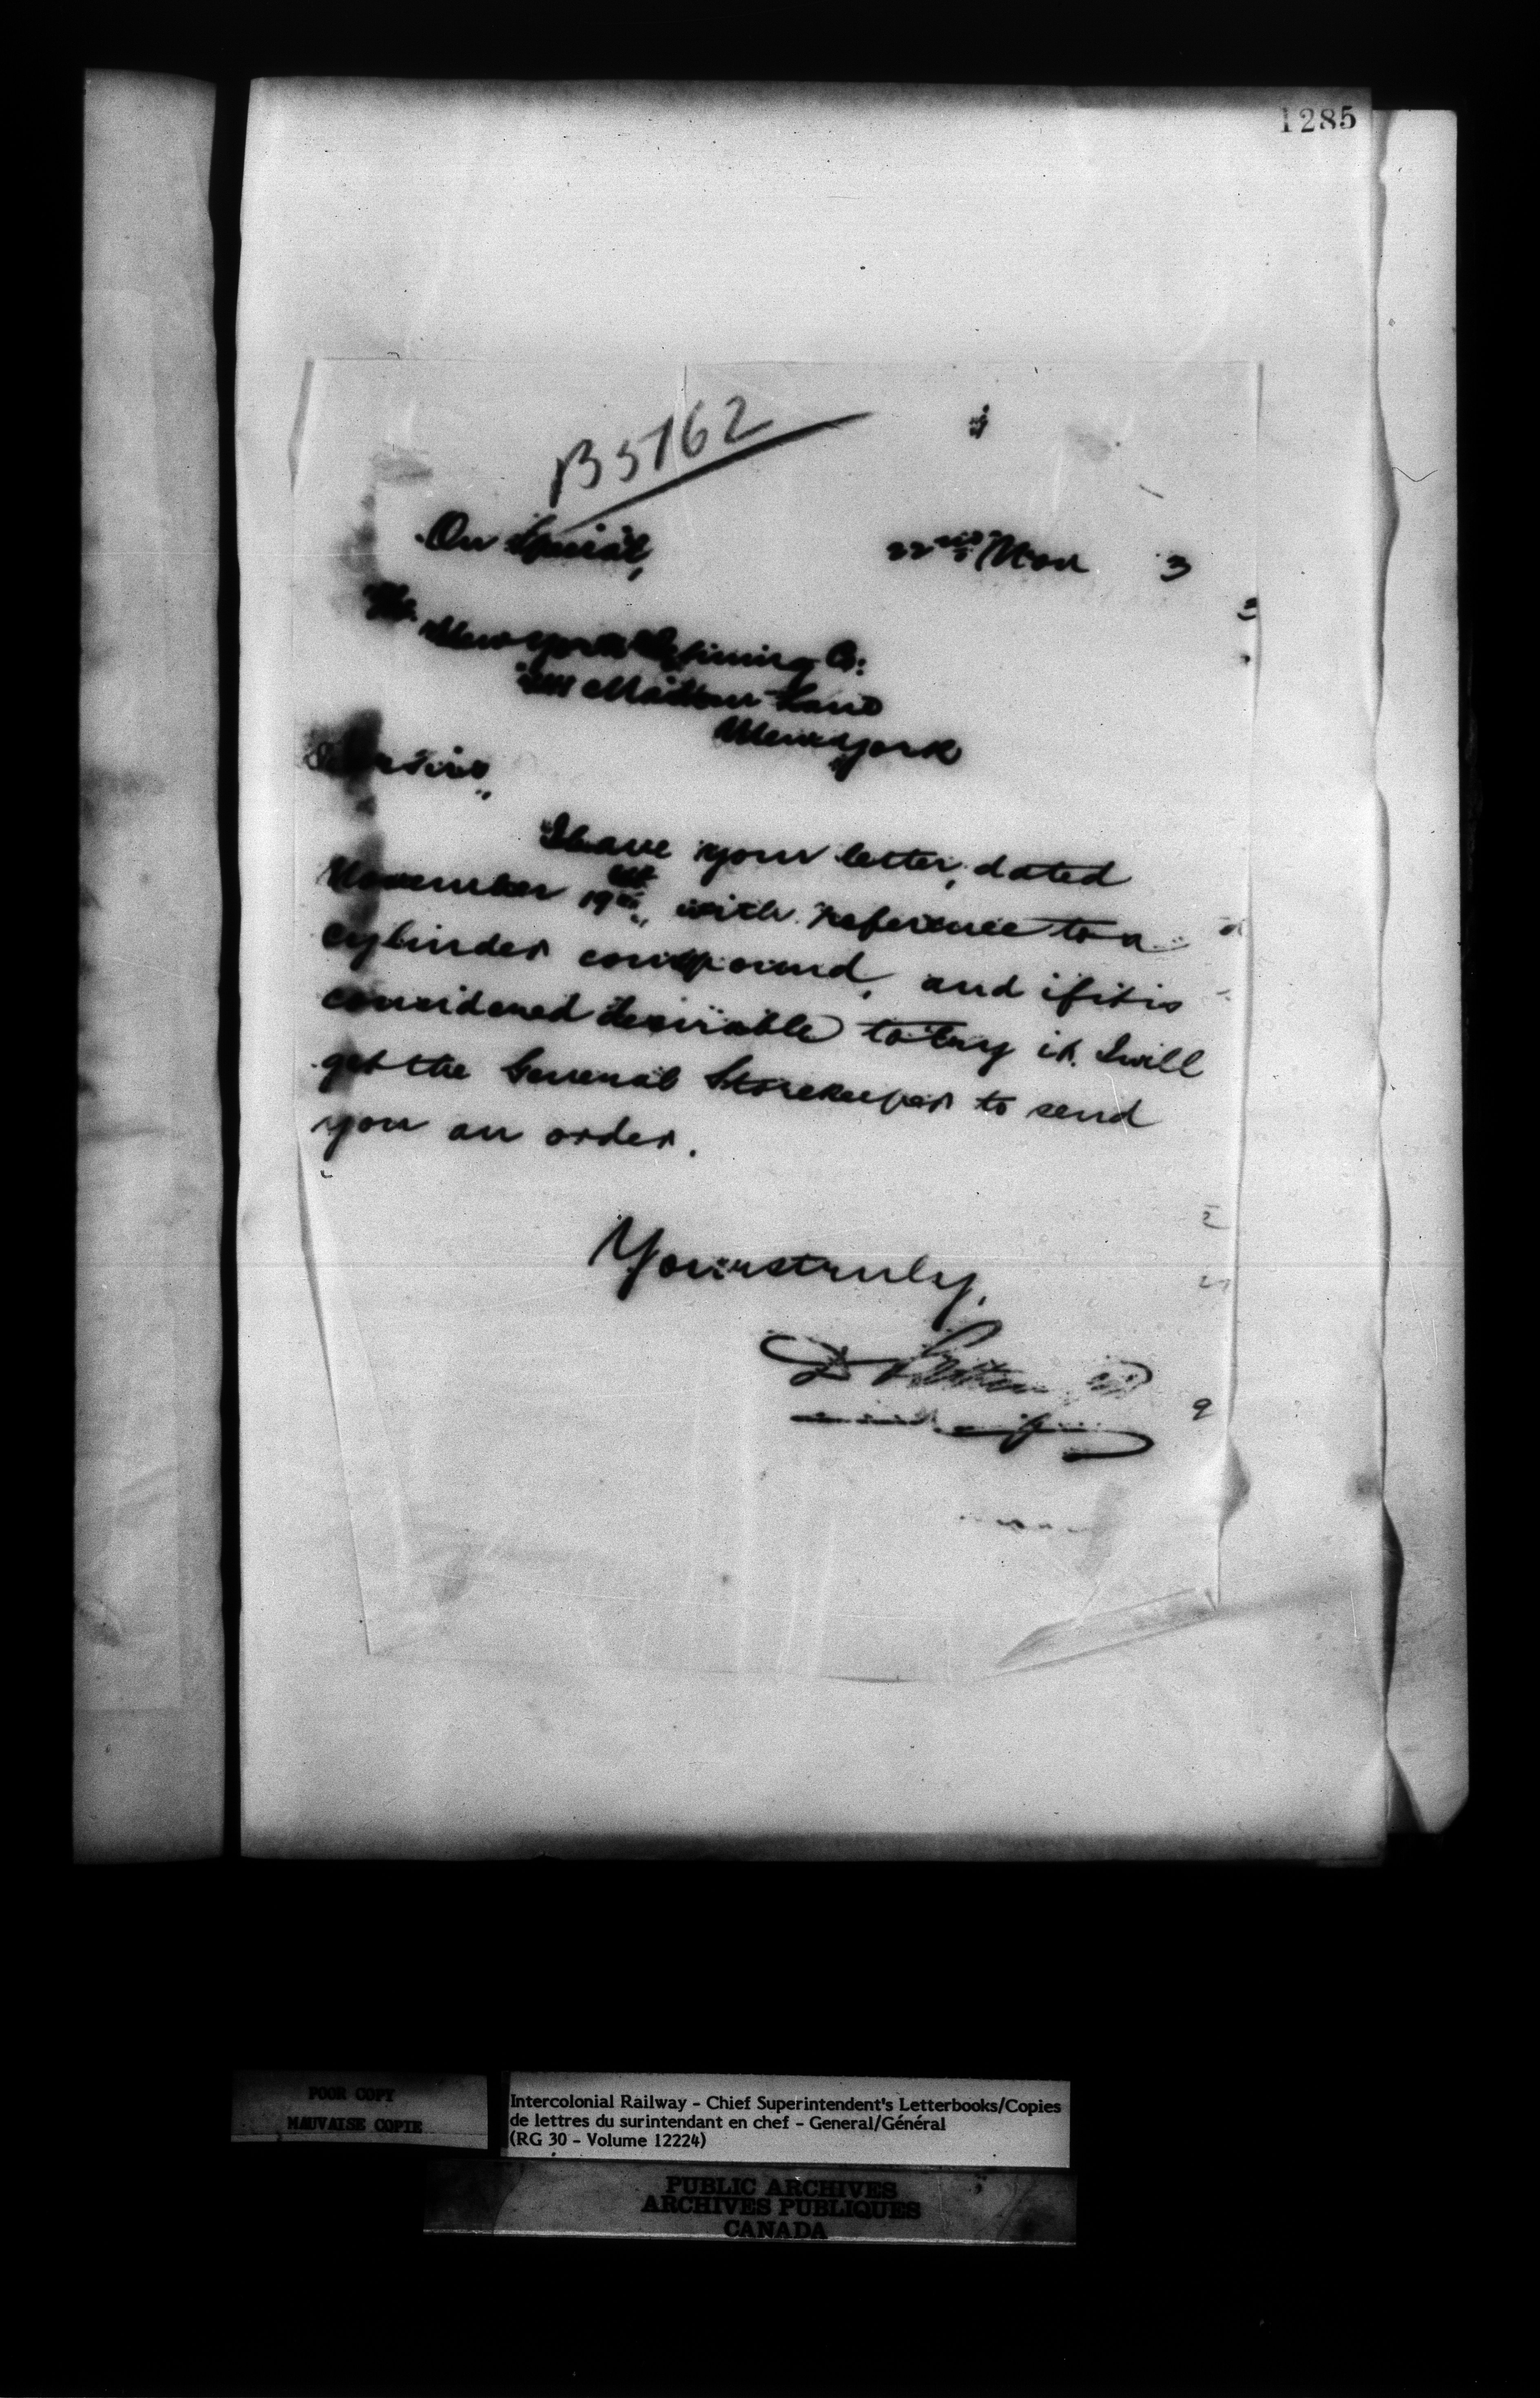 1285
B5762
On Special,
22nd Nov 3
The
New York Refining Co:
Maiden Lane
New York
Dear Sirs,
I have your letter, dated
November 19th, with reference to a
cylinder compound, and if it is
considered desirable to try it. I will
get the General Storekeeper to send
you an order.
Yours truly,
D Pottinger
POOR COPY
MAUVAISE COPIE
Intercolonial Railway - Chief Superintendent's Letterbooks/Copies
de lettres du surintendant en chef - General/Général
(RG 30 - Volume 12224)
PUBLIC ARCHIVES
ARCHIVES PUBLIQUES
CANADA